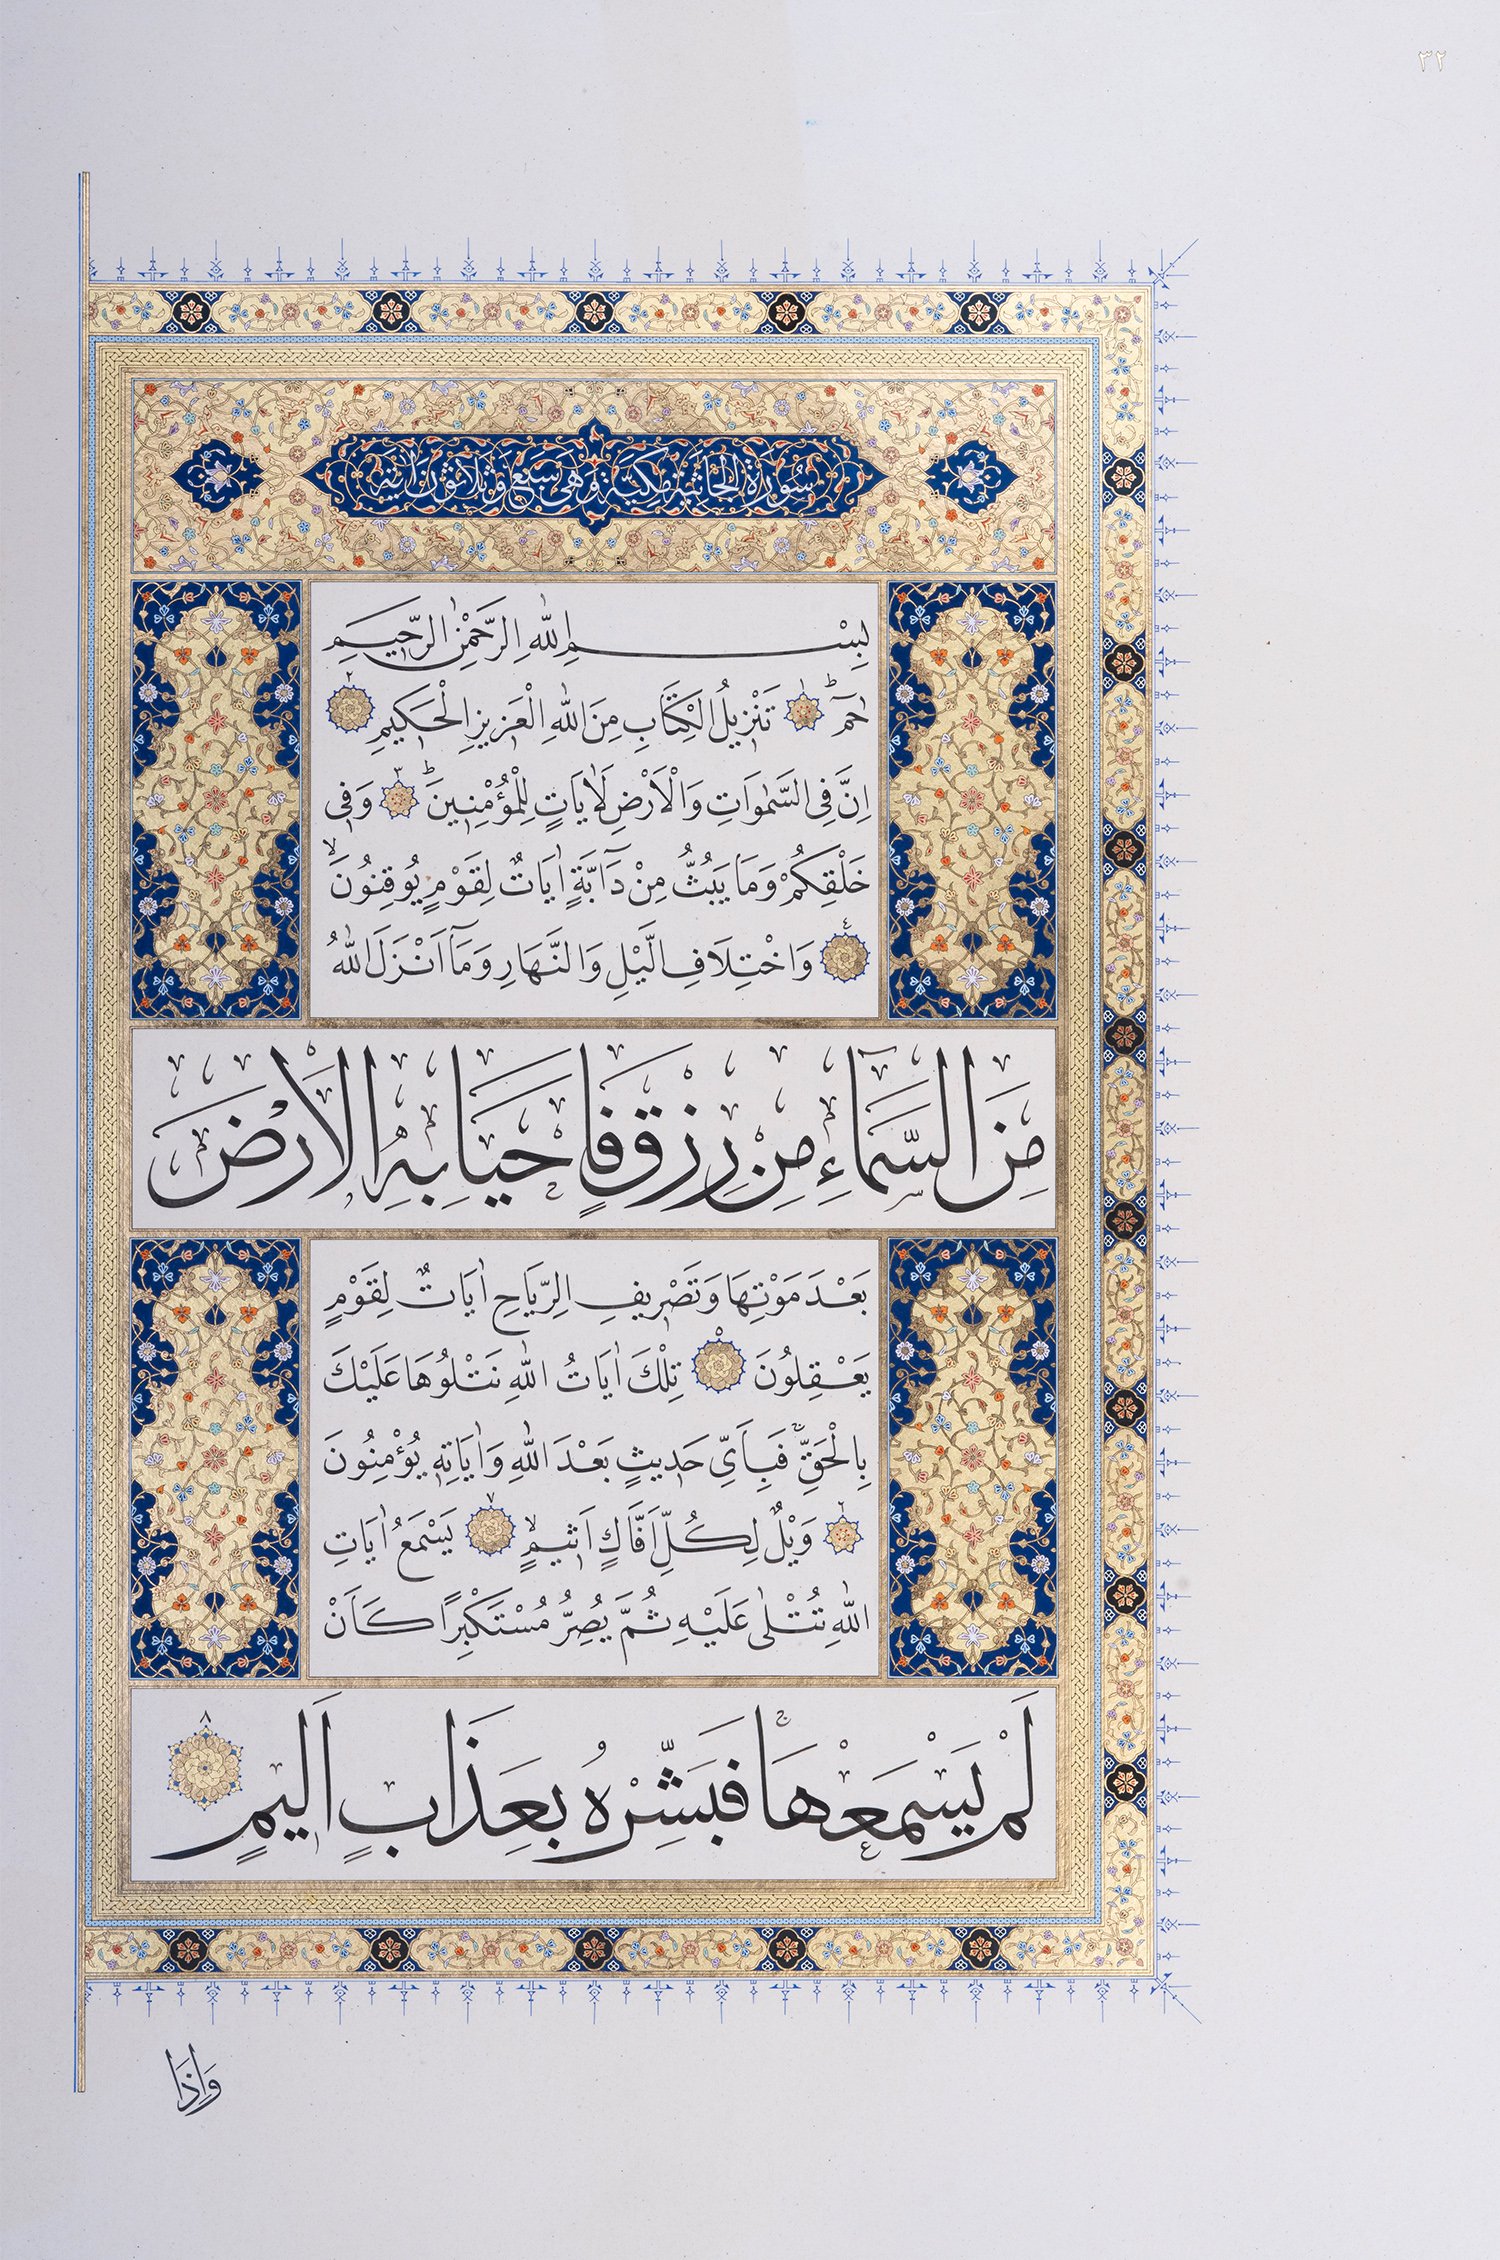 ٣٢
سُورَةُ الْجَاثِيَةِ مَكِّيَّةٌ وَهِيَ سَبْعٌ وَثَلَاثُونَ اٰيَةً
بِسْمِ اللّٰهِ الرَّحْمٰنِ الرَّحٖيمِ
حٰمٓ ۜ ١ تَنْزٖيلُ الْكِتَابِ مِنَ اللّٰهِ الْعَزٖيزِ الْحَكٖيمِ ٢
اِنَّ فِى السَّمٰوَاتِ وَالْاَرْضِ لَاٰيَاتٍ لِلْمُؤْمِنٖينَ ؕ ٣ وَفٖى
خَلْقِكُمْ وَمَا يَبُثُّ مِنْ دَٓابَّةٍ اٰيَاتٌ لِقَوْمٍ يُوقِنُونَۙ
٤ وَاخْتِلَافِ الَّيْلِ وَالنَّهَارِ وَمَٓا اَنْزَلَ اللّٰهُ
مِنَ السَّمَٓاءِ مِنْ رِزْقٍ فَاَحْيَا بِهِ الْاَرْضَ
بَعْدَ مَوْتِهَا وَتَصْرٖيفِ الرِّيَاحِ اٰيَاتٌ لِقَوْمٍ
يَعْقِلُونَ ٥ تِلْكَ اٰيَاتُ اللّٰهِ نَتْلُوهَا عَلَيْكَ
بِالْحَقِّۚ فَبِاَىِّ حَدٖيثٍ بَعْدَ اللّٰهِ وَاٰيَاتِهٖ يُؤْمِنُونَ
٦ وَيْلٌ لِكُلِّ اَفَّاكٍ اَثٖيمٍۙ ٧ يَسْمَعُ اٰيَاتِ
اللّٰهِ تُتْلٰى عَلَيْهِ ثُمَّ يُصِرُّ مُسْتَكْبِرًا كَاَنْ
لَمْ يَسْمَعْهَاۚ فَبَشِّرْهُ بِعَذَابٍ اَلٖيمٍ ٨
وَاِذَا